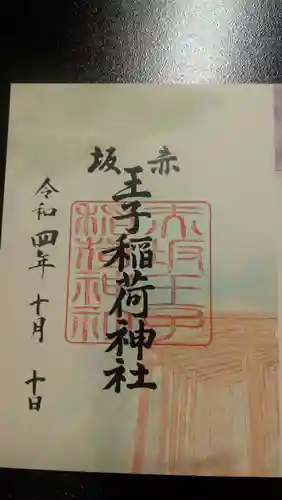 赤坂
王子稲荷神社
令和四年十月十日
赤坂王子
稲荷神社